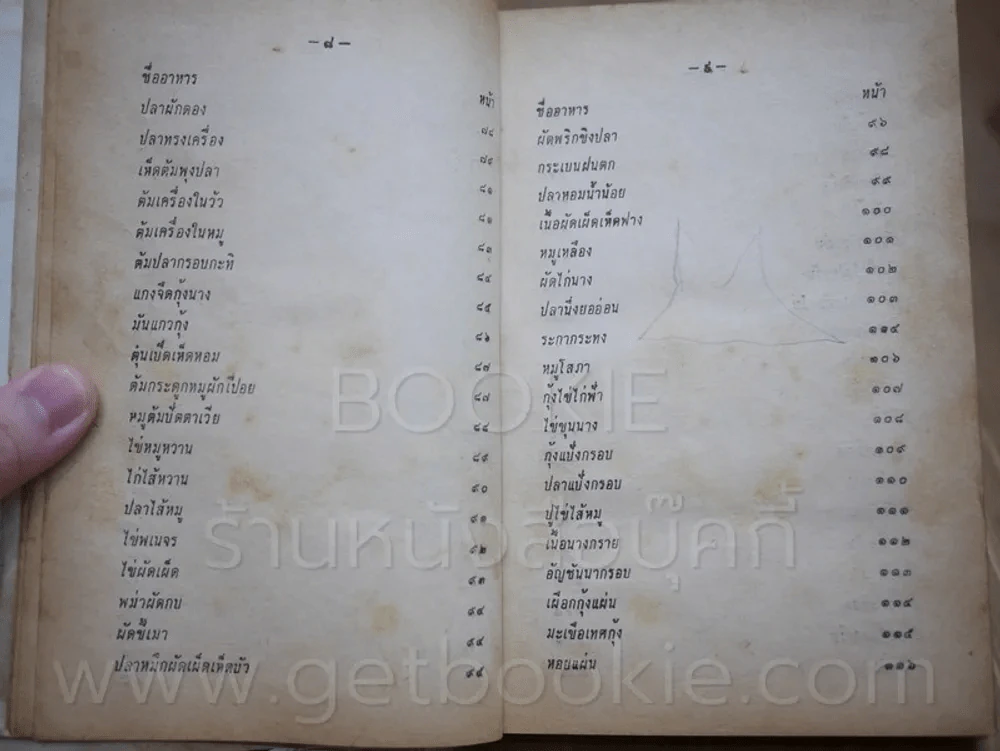 — ๘ —
ชื่ออาหาร หน้า
ปลาผักดอง
ปลาทรงเครื่อง
เห็ดต้มพุงปลา
ต้มเครื่องในวัว
ต้มเครื่องในหมู
ต้มปลากรอบกะทิ ๘๔
แกงจืดกุ้งนาง ๘๕
มันแกวกุ้ง ๘๖
ตุ๋นเป็ดเห็ดหอม ๘๗
ต้มกระดูกหมูผักโปอย ๘๗
หมูต้มปัตตาเวีย ๘๘
ไข่หมูหวาน ๘๙
ไก่ไส้หวาน ๙๐
ปลาไส้หมู ๙๑
ไข่พเนจร ๙๒
ไข่ผัดเผ็ด ๙๓
พม่าผัดกบ ๙๔
ผัดขี้เมา ๙๔
ปลาหมึกผัดเผ็ดเห็ดบัว ๙๕
— ๙ —
ชื่ออาหาร หน้า
ผัดพริกขิงปลา ๙๖
กระเบนฝนตก ๙๘
ปลาหอมน้ำน้อย ๙๙
เนื้อผัดเผ็ดเห็ดฟาง ๑๐๐
หมูเหลือง ๑๐๑
ผัดไก่นาง ๑๐๒
ปลานึ่งยออ่อน ๑๐๓
ระกากระทง
หมูโสภา ๑๐๖
กุ้งไข่ไก่ฟ้า ๑๐๗
ไข่ขุนนาง ๑๐๘
กุ้งแป้งกรอบ ๑๐๙
ปลาแป้งกรอบ ๑๑๐
ปูไข่ไส้หมู ๑๑๑
เนื้อนางกราย ๑๑๒
อัญชันนากรอบ ๑๑๓
เผือกกุ้งแผ่น ๑๑๔
มะเขือเทศกุ้ง ๑๑๕
หอยแผ่น ๑๑๖
BOOKIE
ร้านหนังสือบุ๊คกี้
www.getbookie.com